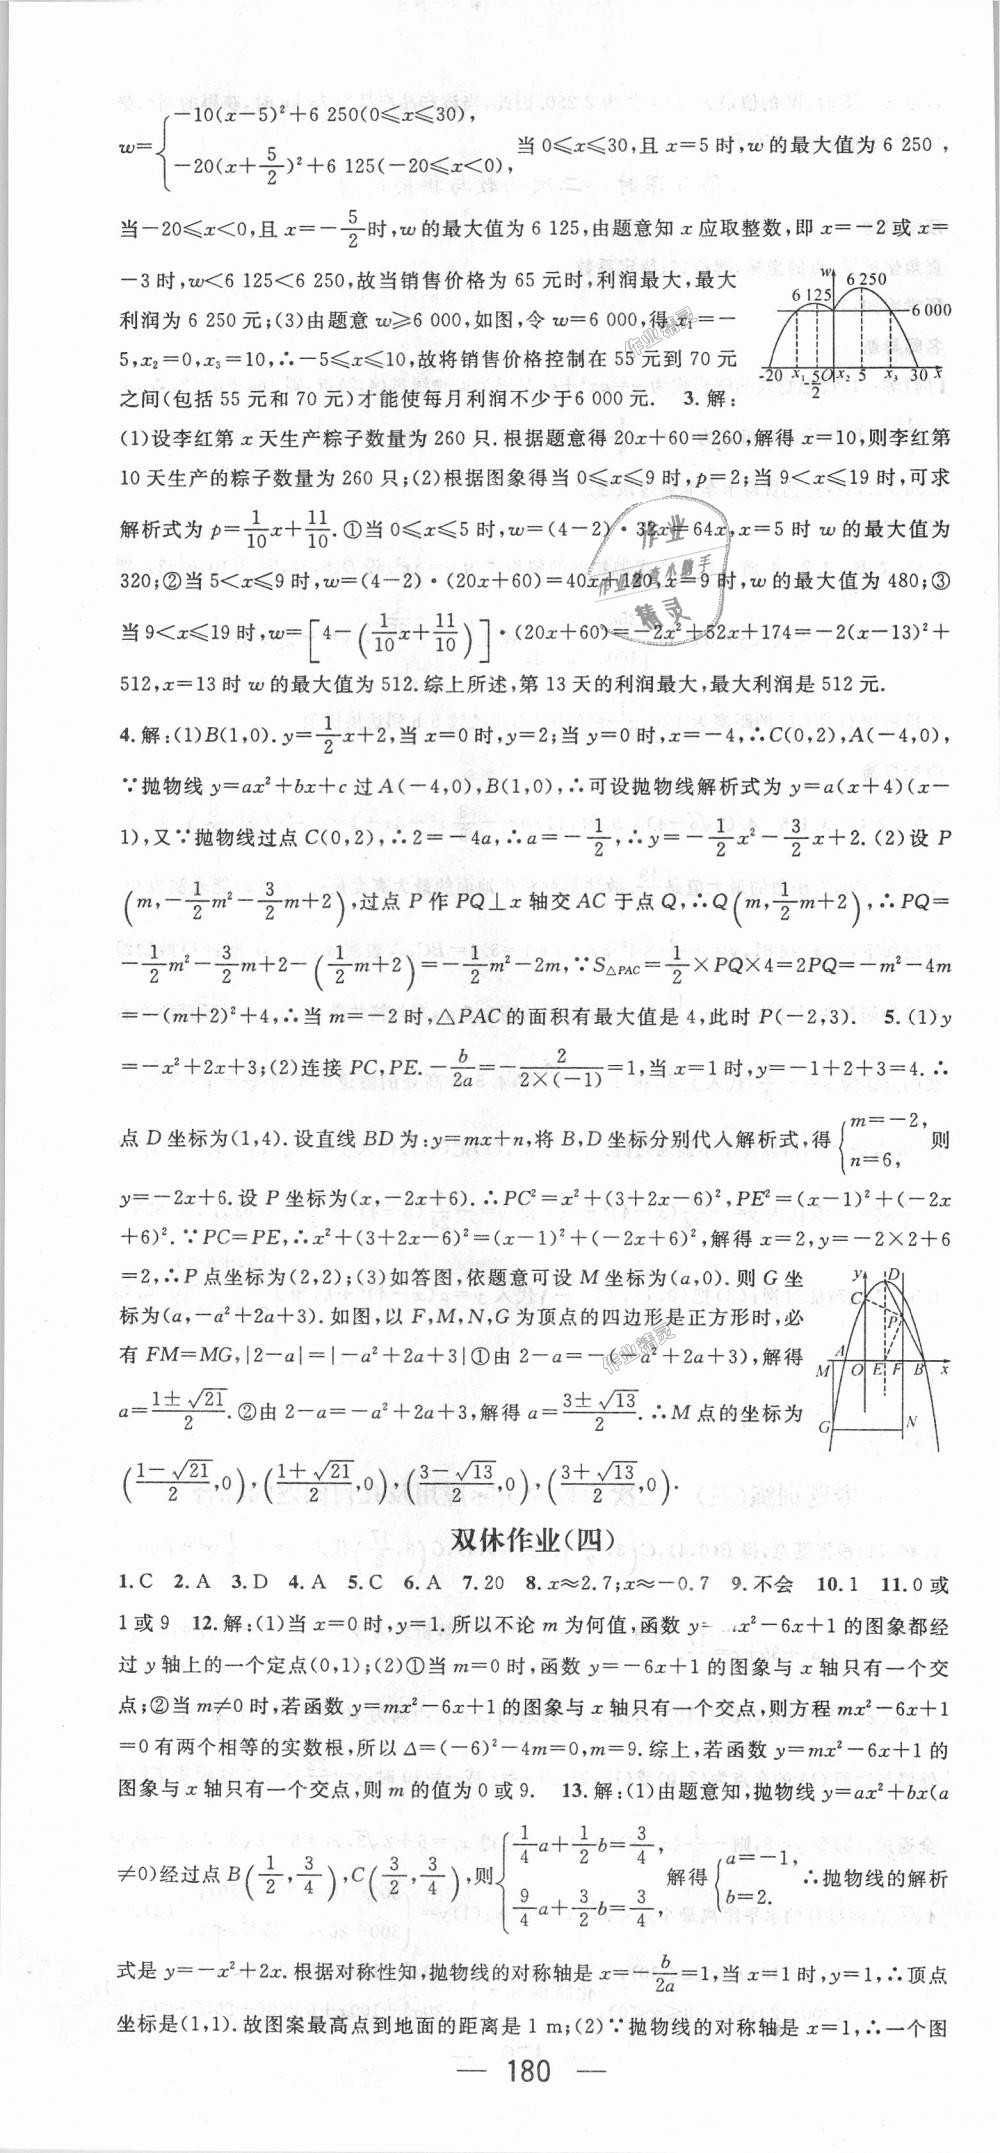 w={-10(x-5)²+6 250(0≤x≤30), -20(x+5/2)²+6 125(-20≤x<0), 当0≤x≤30,且x=5时,w的最大值为6 250,
当-20≤x<0,且x=-5/2时,w的最大值为6 125,由题意知x应取整数,即x=-2或x=
-3时,w<6 125<6 250,故当销售价格为65元时,利润最大,最大
利润为6 250元;(3)由题意w≥6 000,如图,令w=6 000,得x₁=-
5,x₂=0,x₃=10,∴-5≤x≤10,故将销售价格控制在55元到70元
之间(包括55元和70元)才能使每月利润不少于6 000元. 3.解:
w
6 250
6 125
6 000
-20 x₁ -5/2 O x₂ 5 x₃ 30 x
(1)设李红第x天生产粽子数量为260只.根据题意得20x+60=260,解得x=10,则李红第
10天生产的粽子数量为260只;(2)根据图象得当0≤x≤9时,p=2;当9<x≤19时,可求
解析式为p=1/10x+11/10.①当0≤x≤5时,w=(4-2)·32x=64x,x=5时w的最大值为
320;②当5<x≤9时,w=(4-2)·(20x+60)=40x+120,x=9时,w的最大值为480;③
当9<x≤19时,w=[4-(1/10x+11/10)]·(20x+60)=-2x²+52x+174=-2(x-13)²+
512,x=13时w的最大值为512.综上所述,第13天的利润最大,最大利润是512元.
4.解:(1)B(1,0).y=1/2x+2,当x=0时,y=2;当y=0时,x=-4,∴C(0,2),A(-4,0),
∵抛物线y=ax²+bx+c过A(-4,0),B(1,0),∴可设抛物线解析式为y=a(x+4)(x-
1),又∵抛物线过点C(0,2),∴2=-4a,∴a=-1/2,∴y=-1/2x²-3/2x+2.(2)设P
(m,-1/2m²-3/2m+2),过点P作PQ⊥x轴交AC于点Q,∴Q(m,1/2m+2),∴PQ=
-1/2m²-3/2m+2-(1/2m+2)=-1/2m²-2m,∵S△PAC=1/2×PQ×4=2PQ=-m²-4m
=-(m+2)²+4,∴当m=-2时,△PAC的面积有最大值是4,此时P(-2,3). 5.(1)y
=-x²+2x+3;(2)连接PC,PE.-b/2a=-2/2×(-1)=1,当x=1时,y=-1+2+3=4.∴
点D坐标为(1,4).设直线BD为:y=mx+n,将B,D坐标分别代入解析式,得{m=-2, n=6, 则
y=-2x+6.设P坐标为(x,-2x+6).∴PC²=x²+(3+2x-6)²,PE²=(x-1)²+(-2x
+6)².∵PC=PE,∴x²+(3+2x-6)²=(x-1)²+(-2x+6)²,解得x=2,y=-2×2+6
=2,∴P点坐标为(2,2);(3)如答图,依题意可设M坐标为(a,0).则G坐
标为(a,-a²+2a+3).如图,以F,M,N,G为顶点的四边形是正方形时,必
有FM=MG,|2-a|=|-a²+2a+3|①由2-a=-(-a²+2a+3),解得
a=1±√21/2.②由2-a=-a²+2a+3,解得a=3±√13/2.∴M点的坐标为
(1-√21/2,0),(1+√21/2,0),(3-√13/2,0),(3+√13/2,0).
y D
C
P
A
M O E F B x
G N
双休作业(四)
1.C 2.A 3.D 4.A 5.C 6.A 7.20 8.x≈2.7;x≈-0.7 9.不会 10.1 11.0或
1或9 12.解:(1)当x=0时,y=1.所以不论m为何值,函数y= x²-6x+1的图象都经
过y轴上的一个定点(0,1);(2)①当m=0时,函数y=-6x+1的图象与x轴只有一个交
点;②当m≠0时,若函数y=mx²-6x+1的图象与x轴只有一个交点,则方程mx²-6x+1
=0有两个相等的实数根,所以Δ=(-6)²-4m=0,m=9.综上,若函数y=mx²-6x+1的
图象与x轴只有一个交点,则m的值为0或9. 13.解:(1)由题意知,抛物线y=ax²+bx(a
≠0)经过点B(1/2,3/4),C(3/2,3/4),则{1/4a+1/2b=3/4, 9/4a+3/2b=3/4, 解得{a=-1, b=2. ∴抛物线的解析
式是y=-x²+2x.根据对称性知,抛物线的对称轴是x=-b/2a=1,当x=1时,y=1,∴顶点
坐标是(1,1).故图案最高点到地面的距离是1 m;(2)∵抛物线的对称轴是x=1,∴一个图
— 180 —
作业
精灵
作业精灵
作业精灵